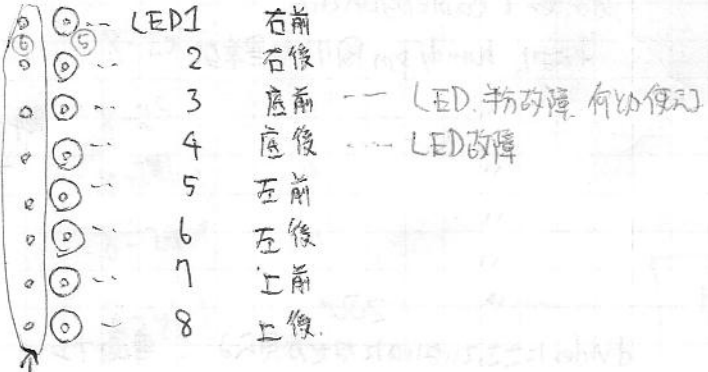 ⑥ ⑤
LED1 右前
2 右後
3 底前 --- LED 半分故障 何とか使える
4 底後 --- LED故障
5 左前
6 左後
7 上前
8 上後.